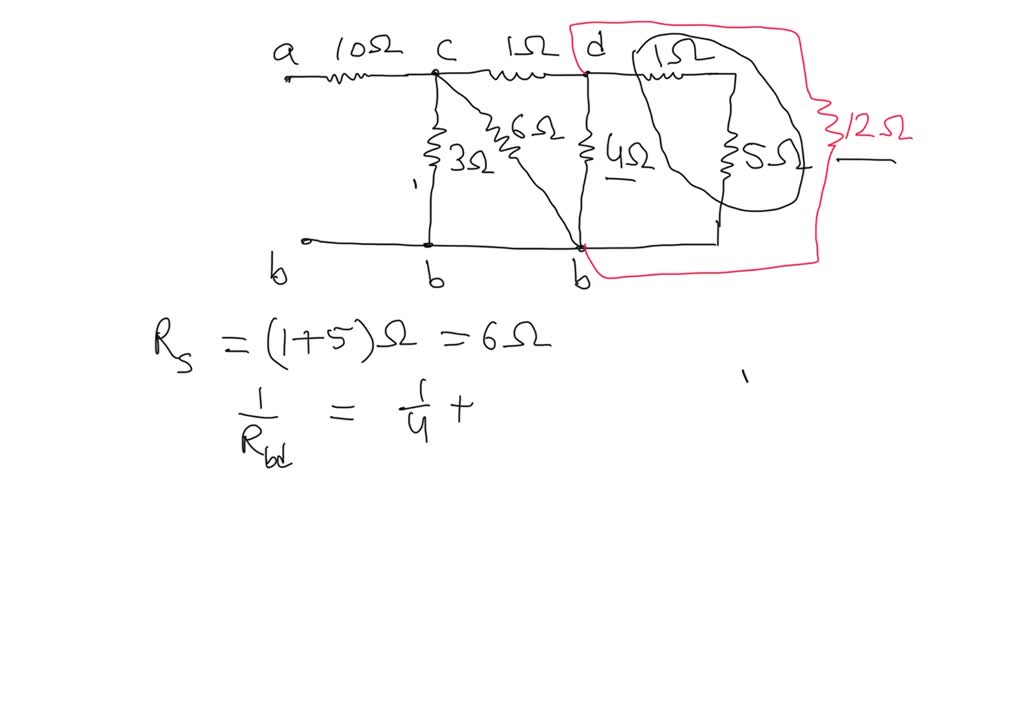 a 10Ω c 1Ω d 1Ω
3Ω 6Ω 4Ω 5Ω 12Ω
b b b
R_S = (1+5)Ω = 6Ω
1/R_bd = 1/4 +